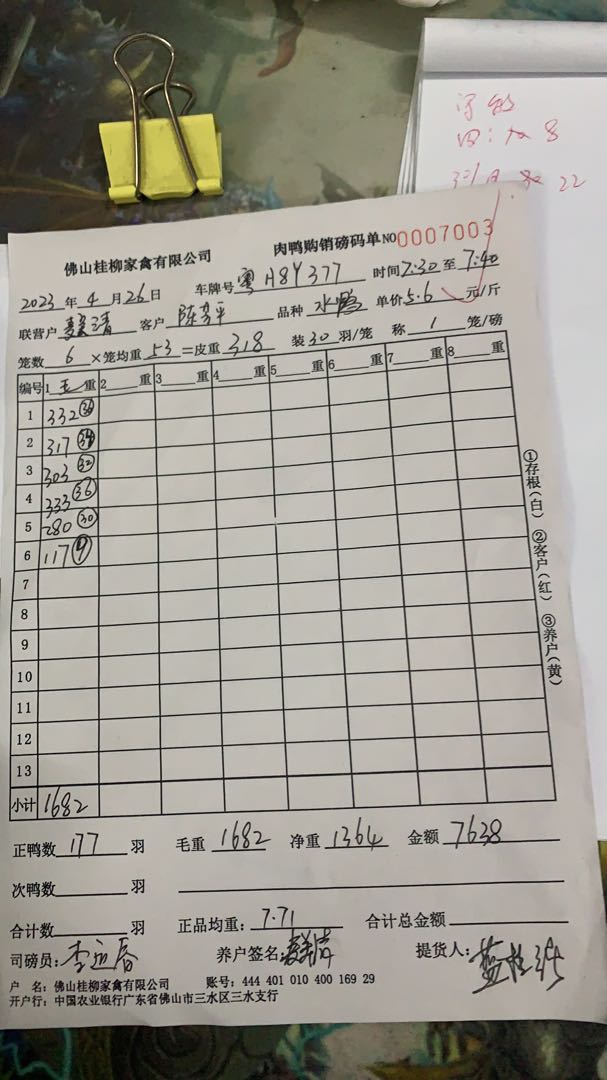 佛山桂柳家禽有限公司 肉鸭购销磅码单 NO 0007003
2023 年 4 月 26 日 车牌号 粤A8Y377 时间 7:30 至 7:40
联营户 清 客户 陈 平 品种 水鸭 单价 5.6 元/斤
笼数 6 ×笼均重 53 =皮重 318 装 30 羽/笼 称 1 笼/磅
编号 1 毛 重 2 重 3 重 4 重 5 重 6 重 7 重 8 重
1 332 36
2 317 34
3 303 32
4 333 36
5 280 30
6 117 9
7
8
9
10
11
12
13
小计 1682
正鸭数 177 羽 毛重 1682 净重 1364 金额 7638
次鸭数 羽
合计数 羽 正品均重: 7.71 合计总金额
司磅员: 李 春 养户签名: 清 提货人: 蓝桂
户 名: 佛山桂柳家禽有限公司 账号: 444 401 010 400 169 29
开户行: 中国农业银行广东省佛山市三水区三水支行
①存根(白) ②客户(红) ③养户(黄)
8
22